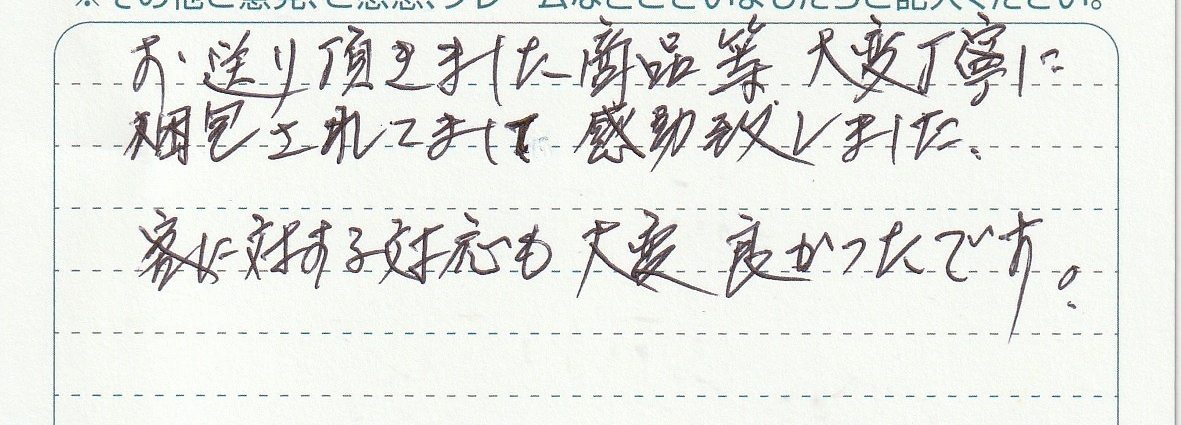 ※その他ご意見、ご感想、クレームなどございましたらご記入ください。
お送り頂きました商品等 大変丁寧に
梱包されてまして 感動致しました、
客に対する対応も 大変 良かったです。